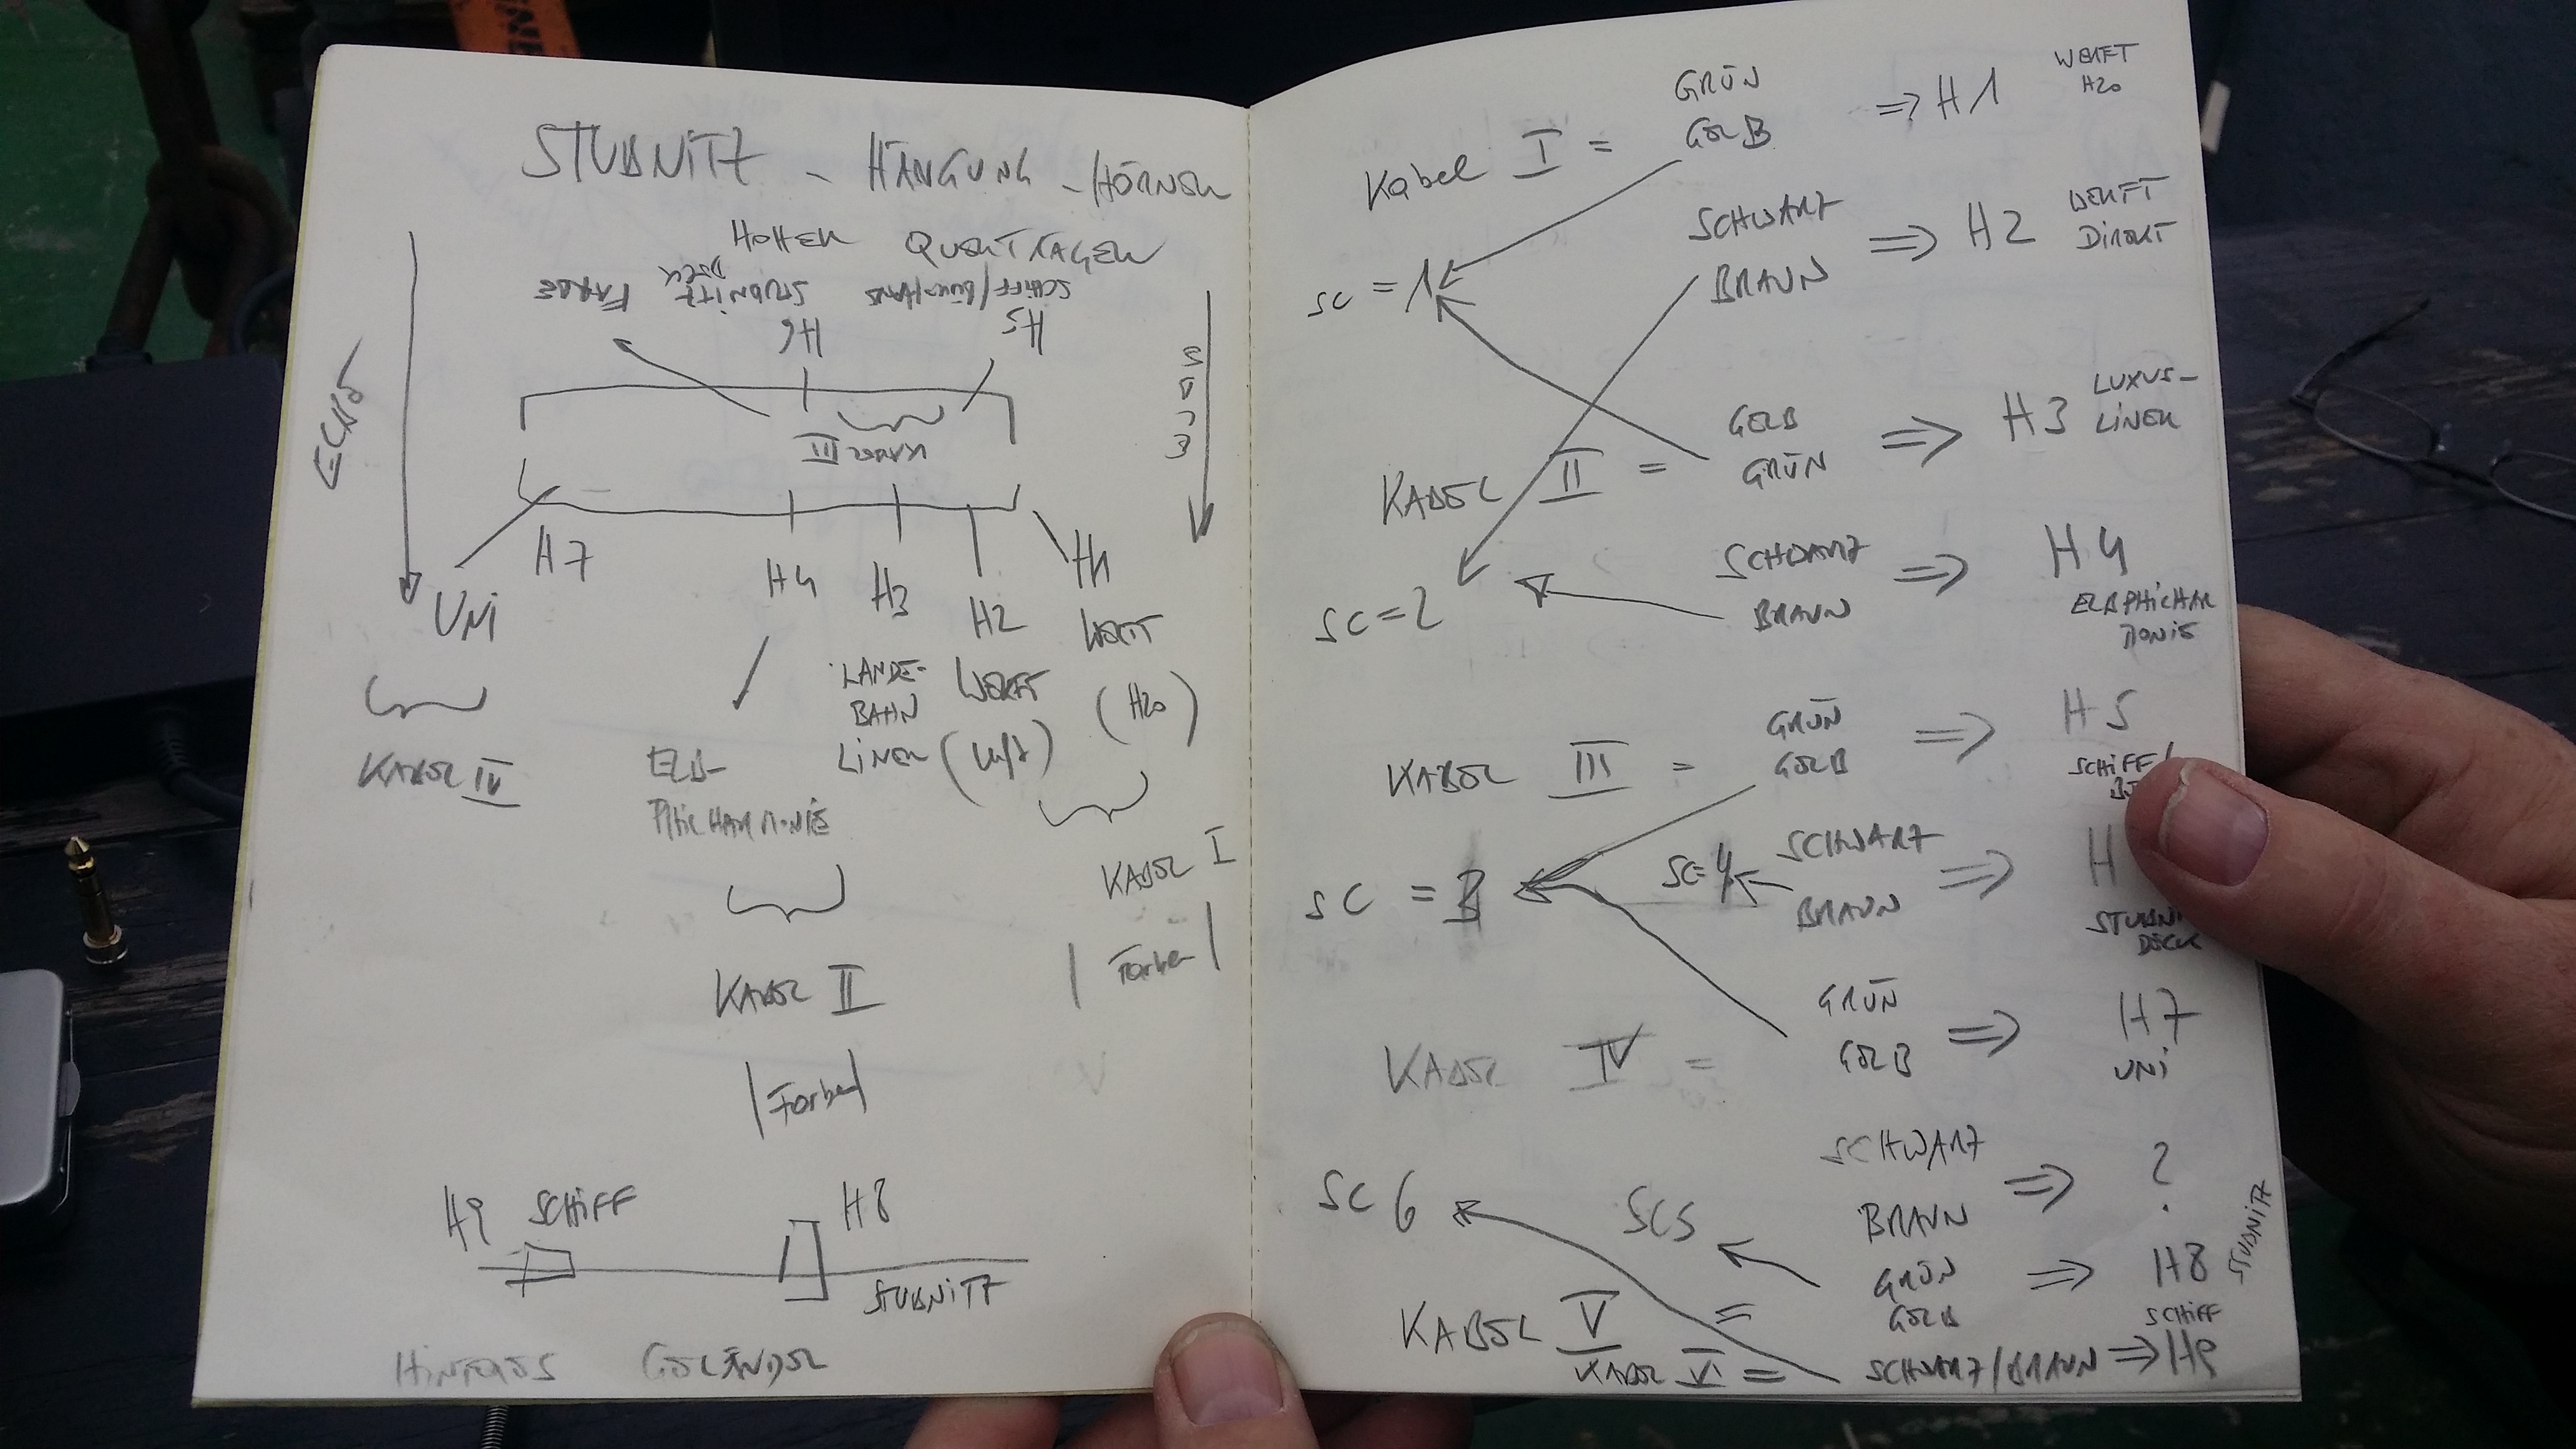 STUBNITZ - HÄNGUNG - HÖRNER
HOHER QUERTRÄGER
FÄHRE
STUBNITZ DECK
SCHIFF/
H6
H5
KABEL III
ECKE
UNI
H7
H4
H3
H2
H1
WERFT
(H2O)
LANDE-
BAHN
LINER
WERFT
(Luft)
KABEL IV
ELB-
PHILHARMONIE
KABEL I
| Farben |
KABEL II
| Farben |
H9 SCHIFF
H8
STUBNITZ
HINTERES GELÄNDER
Kabel I =
GRÜN
GELB
⇒ H1
WERFT
H2O
SC = 1
SCHWARZ
BRAUN
⇒ H2
WERFT
DIREKT
KABEL II =
GELB
GRÜN
⇒ H3
LUXUS-
LINER
SC = 2
SCHWARZ
BRAUN
⇒ H4
ELBPHILHAR
MONIE
KABEL III =
GRÜN
GELB
⇒ H5
SCHIFF/
SC = 3
SC = 4
SCHWARZ
BRAUN
⇒ H
STUBNI
DECK
KABEL IV =
GRÜN
GELB
⇒ H7
UNI
SCHWARZ
BRAUN
⇒ ?
SC 6
SC5
KABEL V =
GRÜN
GELB
⇒ H8
STUBNITZ
KABEL VI =
SCHWARZ/BRAUN ⇒ H9
SCHIFF